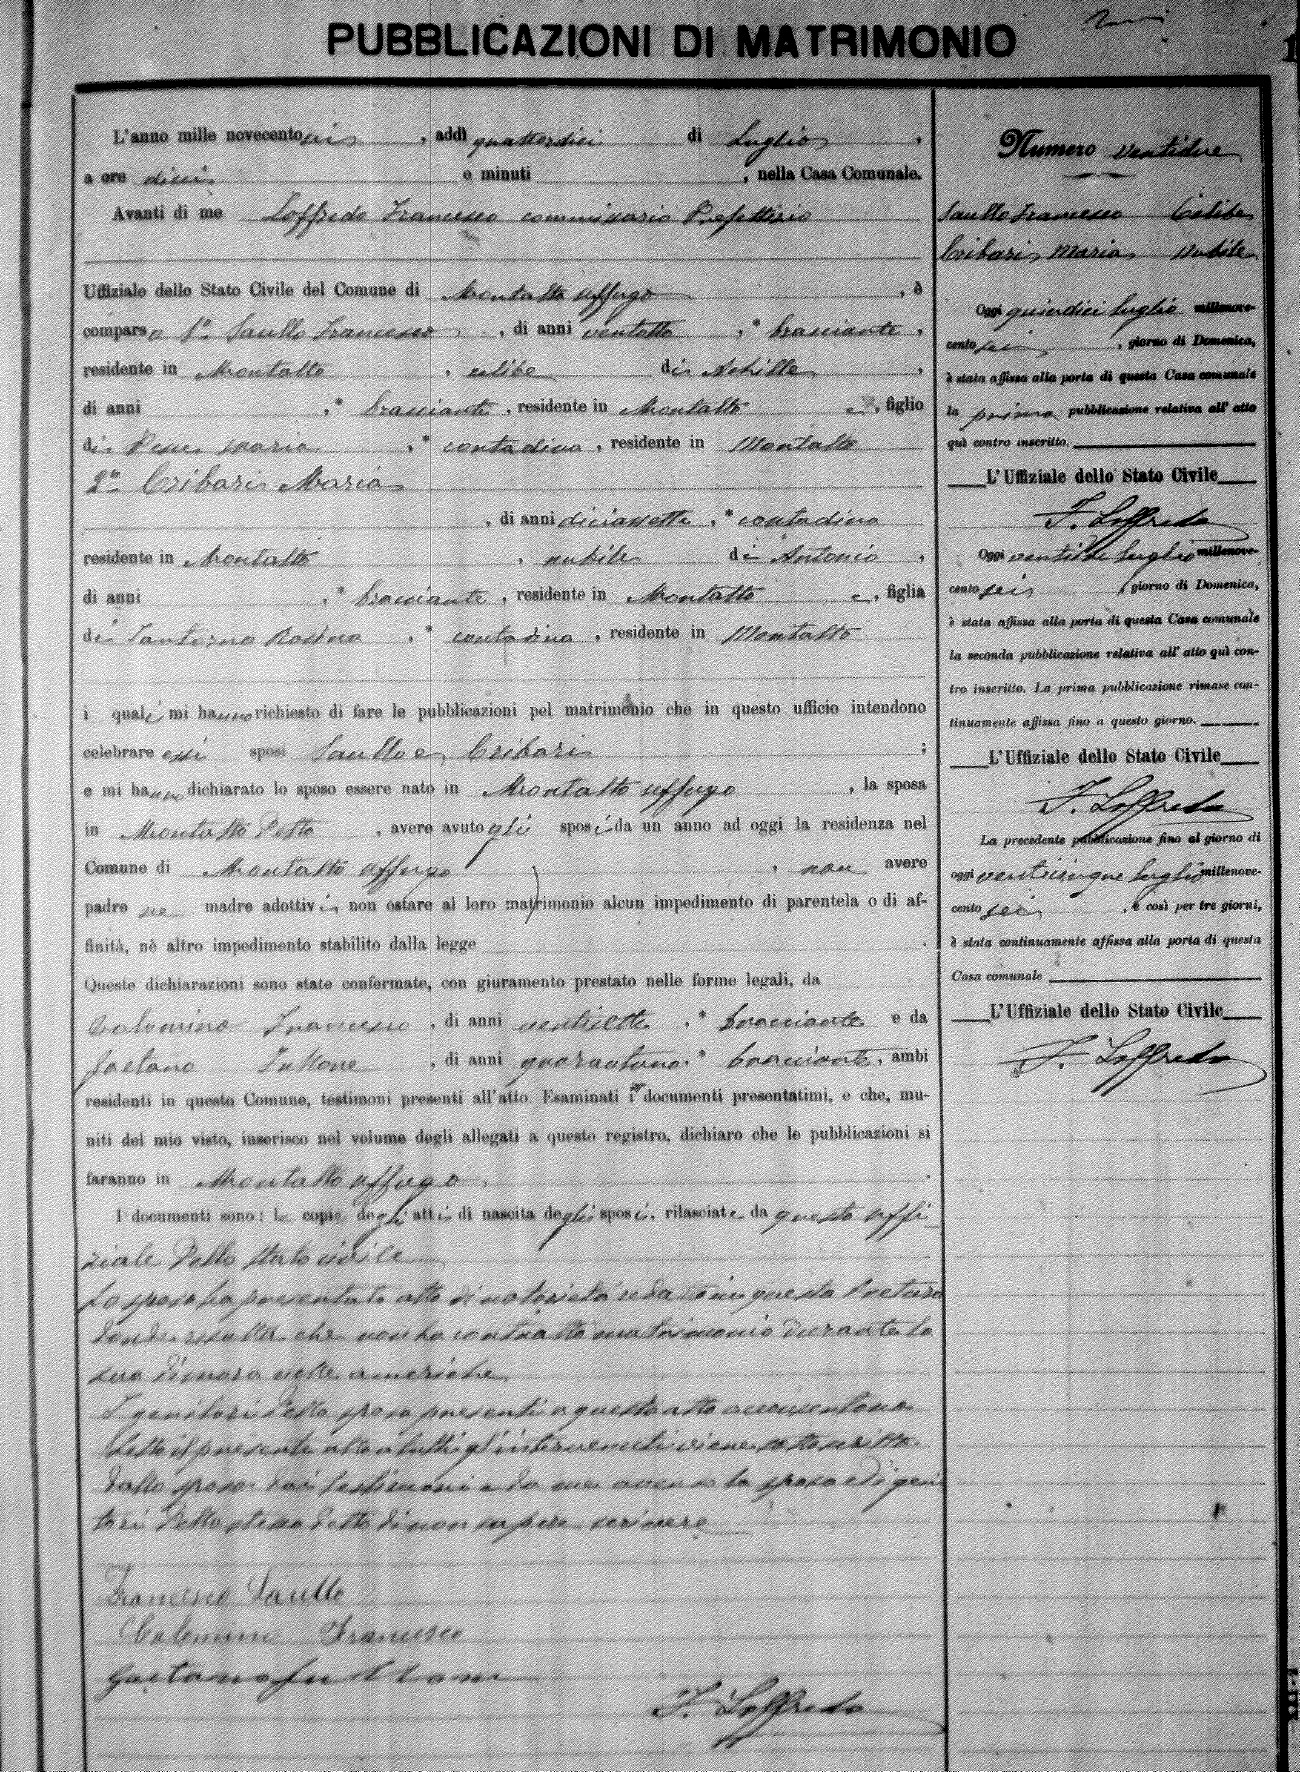 PUBBLICAZIONI DI MATRIMONIO
L'anno mille novecento sei, addì quattordici di Luglio,
a ore dieci e minuti , nella Casa Comunale.
Avanti di me Loffredo Francesco commissario Prefettizio
Uffiziale dello Stato Civile del Comune di Montalto Uffugo, è
comparso 1º Saullo Francesco, di anni ventotto, * bracciante,
residente in Montalto, celibe di Achille,
di anni , * bracciante, residente in Montalto e, figlio
di Maria, * contadina, residente in Montalto
2º Cribari Maria
, di anni diciassette, * contadina
residente in Montalto, nubile di Antonio,
di anni , * bracciante, residente in Montalto e, figlia
di Rosina, * contadina, residente in Montalto
i quali mi hanno richiesto di fare le pubblicazioni pel matrimonio che in questo ufficio intendono
celebrare essi sposi Saullo e Cribari ;
e mi hanno dichiarato lo sposo essere nato in Montalto Uffugo, la sposa
in Montalto Detto, avere avuto gli sposi da un anno ad oggi la residenza nel
Comune di Montalto Uffugo, non avere
padre ne madre adottivi, non ostare al loro matrimonio alcun impedimento di parentela o di af-
finità, nè altro impedimento stabilito dalla legge .
Queste dichiarazioni sono state confermate, con giuramento prestato nelle forme legali, da
Calomino Francesco, di anni ventisette, * bracciante e da
Gaetano, di anni quarantuno, * bracciante, ambi
residenti in questo Comune, testimoni presenti all'atto. Esaminati i documenti presentatimi, e che, mu-
niti del mio visto, inserisco nel volume degli allegati a questo registro, dichiaro che le pubblicazioni si
faranno in Montalto Uffugo.
I documenti sono: le copie degli atti di nascita degli sposi, rilasciate da questo uffi
ziale dello stato civile
Lo sposo ha presentato atto di notorietà redatto in questa Pretura
donde risulta che non ha contratto matrimonio durante la
sua dimora nelle americhe
I genitori della sposa presenti a questo atto acconsentono
Letto il presente atto a tutti gl'intervenuti viene sottoscritto
dallo sposo dai testimoni e da me avendo la sposa ed i geni
tori della stessa detto di non sapere scrivere
Francesco Saullo
Calomino Francesco
Gaetano
F. Loffredo
Numero ventidue
Saullo Francesco Celibe
Cribari Maria Nubile
Oggi quindici luglio millenove-
cento sei, giorno di Domenica,
è stata affissa alla porta di questa Casa comunale
la prima pubblicazione relativa all'atto
quì contro inscritto.
L'Uffiziale dello Stato Civile
F. Loffredo
Oggi ventidue luglio millenove-
cento sei, giorno di Domenica,
è stata affissa alla porta di questa Casa comunale
la seconda pubblicazione relativa all'atto quì con-
tro inscritto. La prima pubblicazione rimase con-
tinuamente affissa fino a questo giorno.
L'Uffiziale dello Stato Civile
F. Loffredo
La precedente pubblicazione fino al giorno di
oggi venticinque luglio millenove-
cento sei, e così per tre giorni,
è stata continuamente affissa alla porta di questa
Casa comunale
L'Uffiziale dello Stato Civile
F. Loffredo